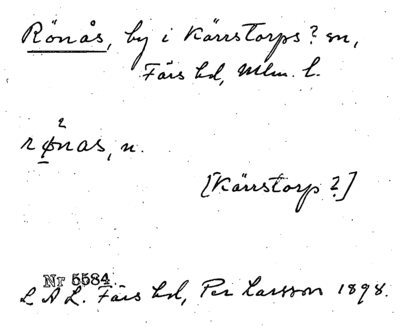 Rönås, by i Kärrstorps? sn,
Färs hd, Mlm. l.
rønas, n.
[Kärrstorp?]
Nr 5584
L A L. Färs hd, Per Larsson 1898.